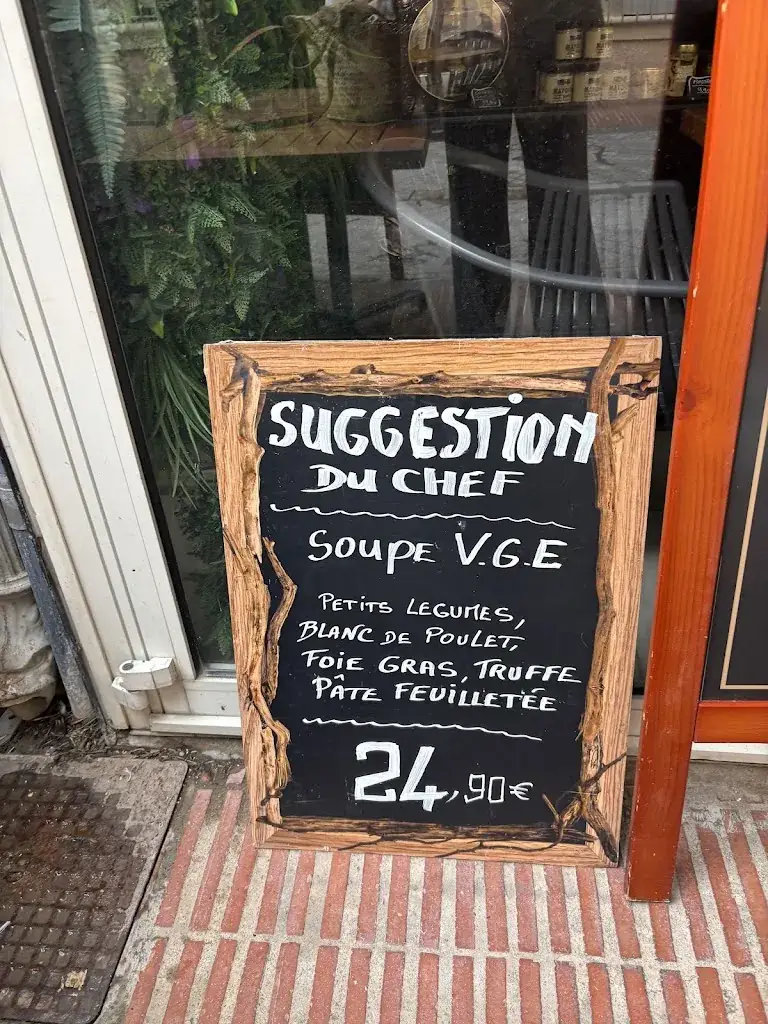 SUGGESTION
DU CHEF
SOUPE V.G.E
PETITS LEGUMES,
BLANC DE POULET,
FOIE GRAS, TRUFFE
PÂTE FEUILLETÉE
24,90€